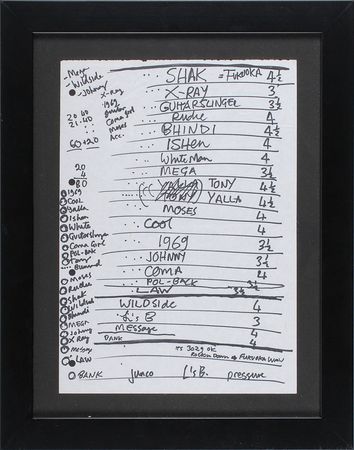 - Mega
- Wildside
- Johnny
X-Ray
1969
Guitar
Coma Girl
Moses
Acc.
20 60
21.40
60+20
20
4
80
SHAK = FUKUOKA 4½
X-RAY 3
GUITARSLINGEL 3½
Rudie 4
BHINDI 4½
IShen 4
White Man 4
MEGA 3½
TONY 4½
YALLA 4½
MOSES 4
COOL 4
1969 3½
JOHNNY 3½
COMA 4
POL-BACK 3½
LAW 3½
WILDSide 4
L's B 3
Message 4
DANK 4
ROCKIN DOWN
1969
COOL
Yalla
Ishen
White
Guitarslinga
Coma Girl
POL-BACK
Tony
Moses
Rudie
Shak
Wildsid
Bhindi
MEGA
Johnny
X Ray
Messag
LAW
BANK Junco L's B. pressure